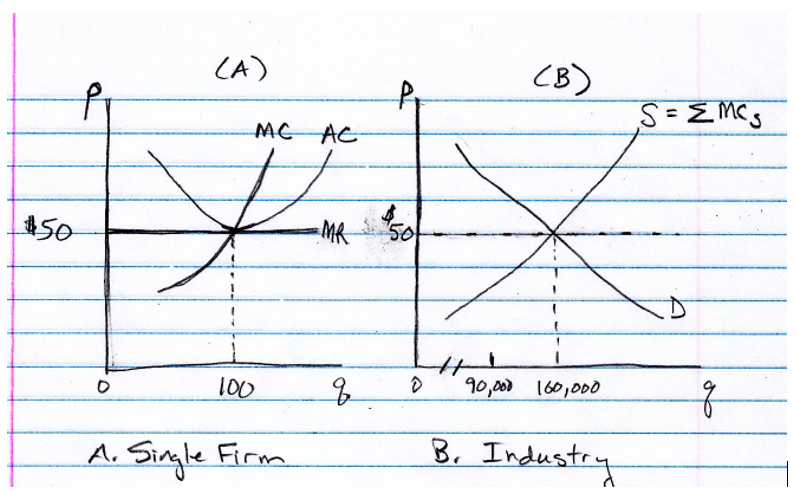 (A)
(B)
P
P
MC
AC
S = Σ MCs
$50
MR
$50
D
0
100
q
0
90,000
160,000
q
A. Single Firm
B. Industry